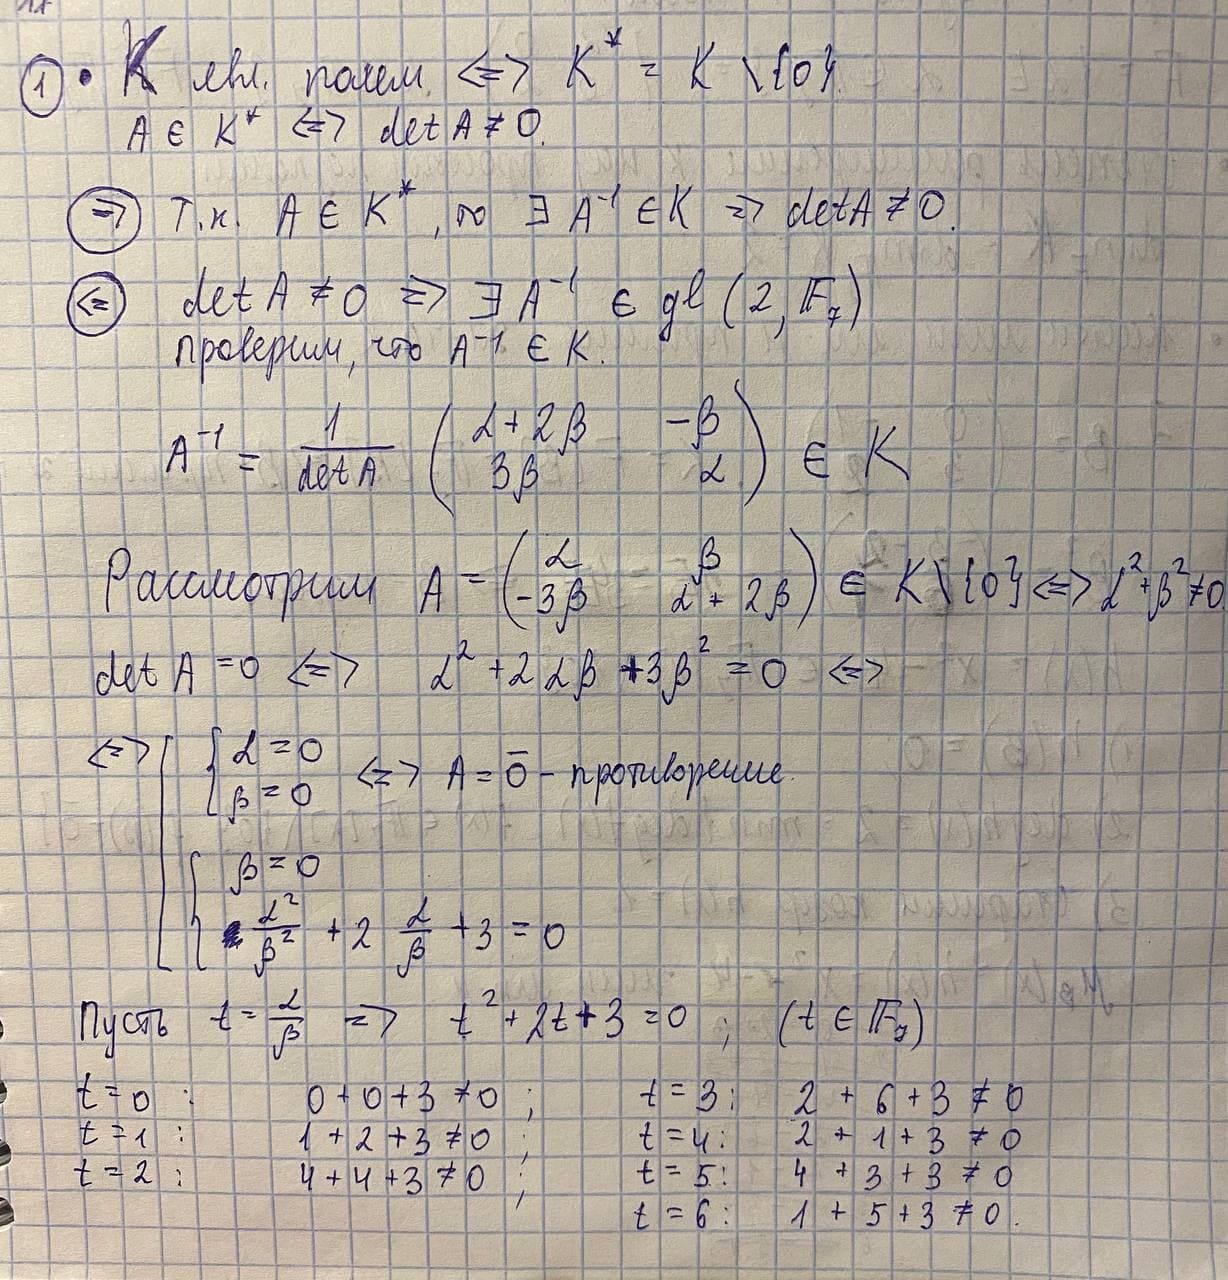 ① • K явл. полем <=> K* = K \ {0}
A ∈ K* <=> det A ≠ 0.
(=>) Т.к. A ∈ K*, то ∃ A⁻¹ ∈ K => det A ≠ 0.
(<=) det A ≠ 0 => ∃ A⁻¹ ∈ gl (2, 𝔽₇)
проверим, что A⁻¹ ∈ K.
A⁻¹ = 1/det A (α + 2β  -β ; 3β  α) ∈ K
Рассмотрим A = (α  β ; -3β  α + 2β) ∈ K \ {0} <=> α² + β² ≠ 0
det A = 0 <=> α² + 2αβ + 3β² = 0 <=>
<=> [ { α = 0
β = 0 <=> A = 0̄ - противоречие.
{ β = 0
α²/β² + 2 α/β + 3 = 0
Пусть t = α/β => t² + 2t + 3 = 0 ; (t ∈ 𝔽₇)
t = 0 : 0 + 0 + 3 ≠ 0 ; t = 3 : 2 + 6 + 3 ≠ 0
t = 1 : 1 + 2 + 3 ≠ 0 ; t = 4 : 2 + 1 + 3 ≠ 0
t = 2 : 4 + 4 + 3 ≠ 0 ; t = 5 : 4 + 3 + 3 ≠ 0
t = 6 : 1 + 5 + 3 ≠ 0.